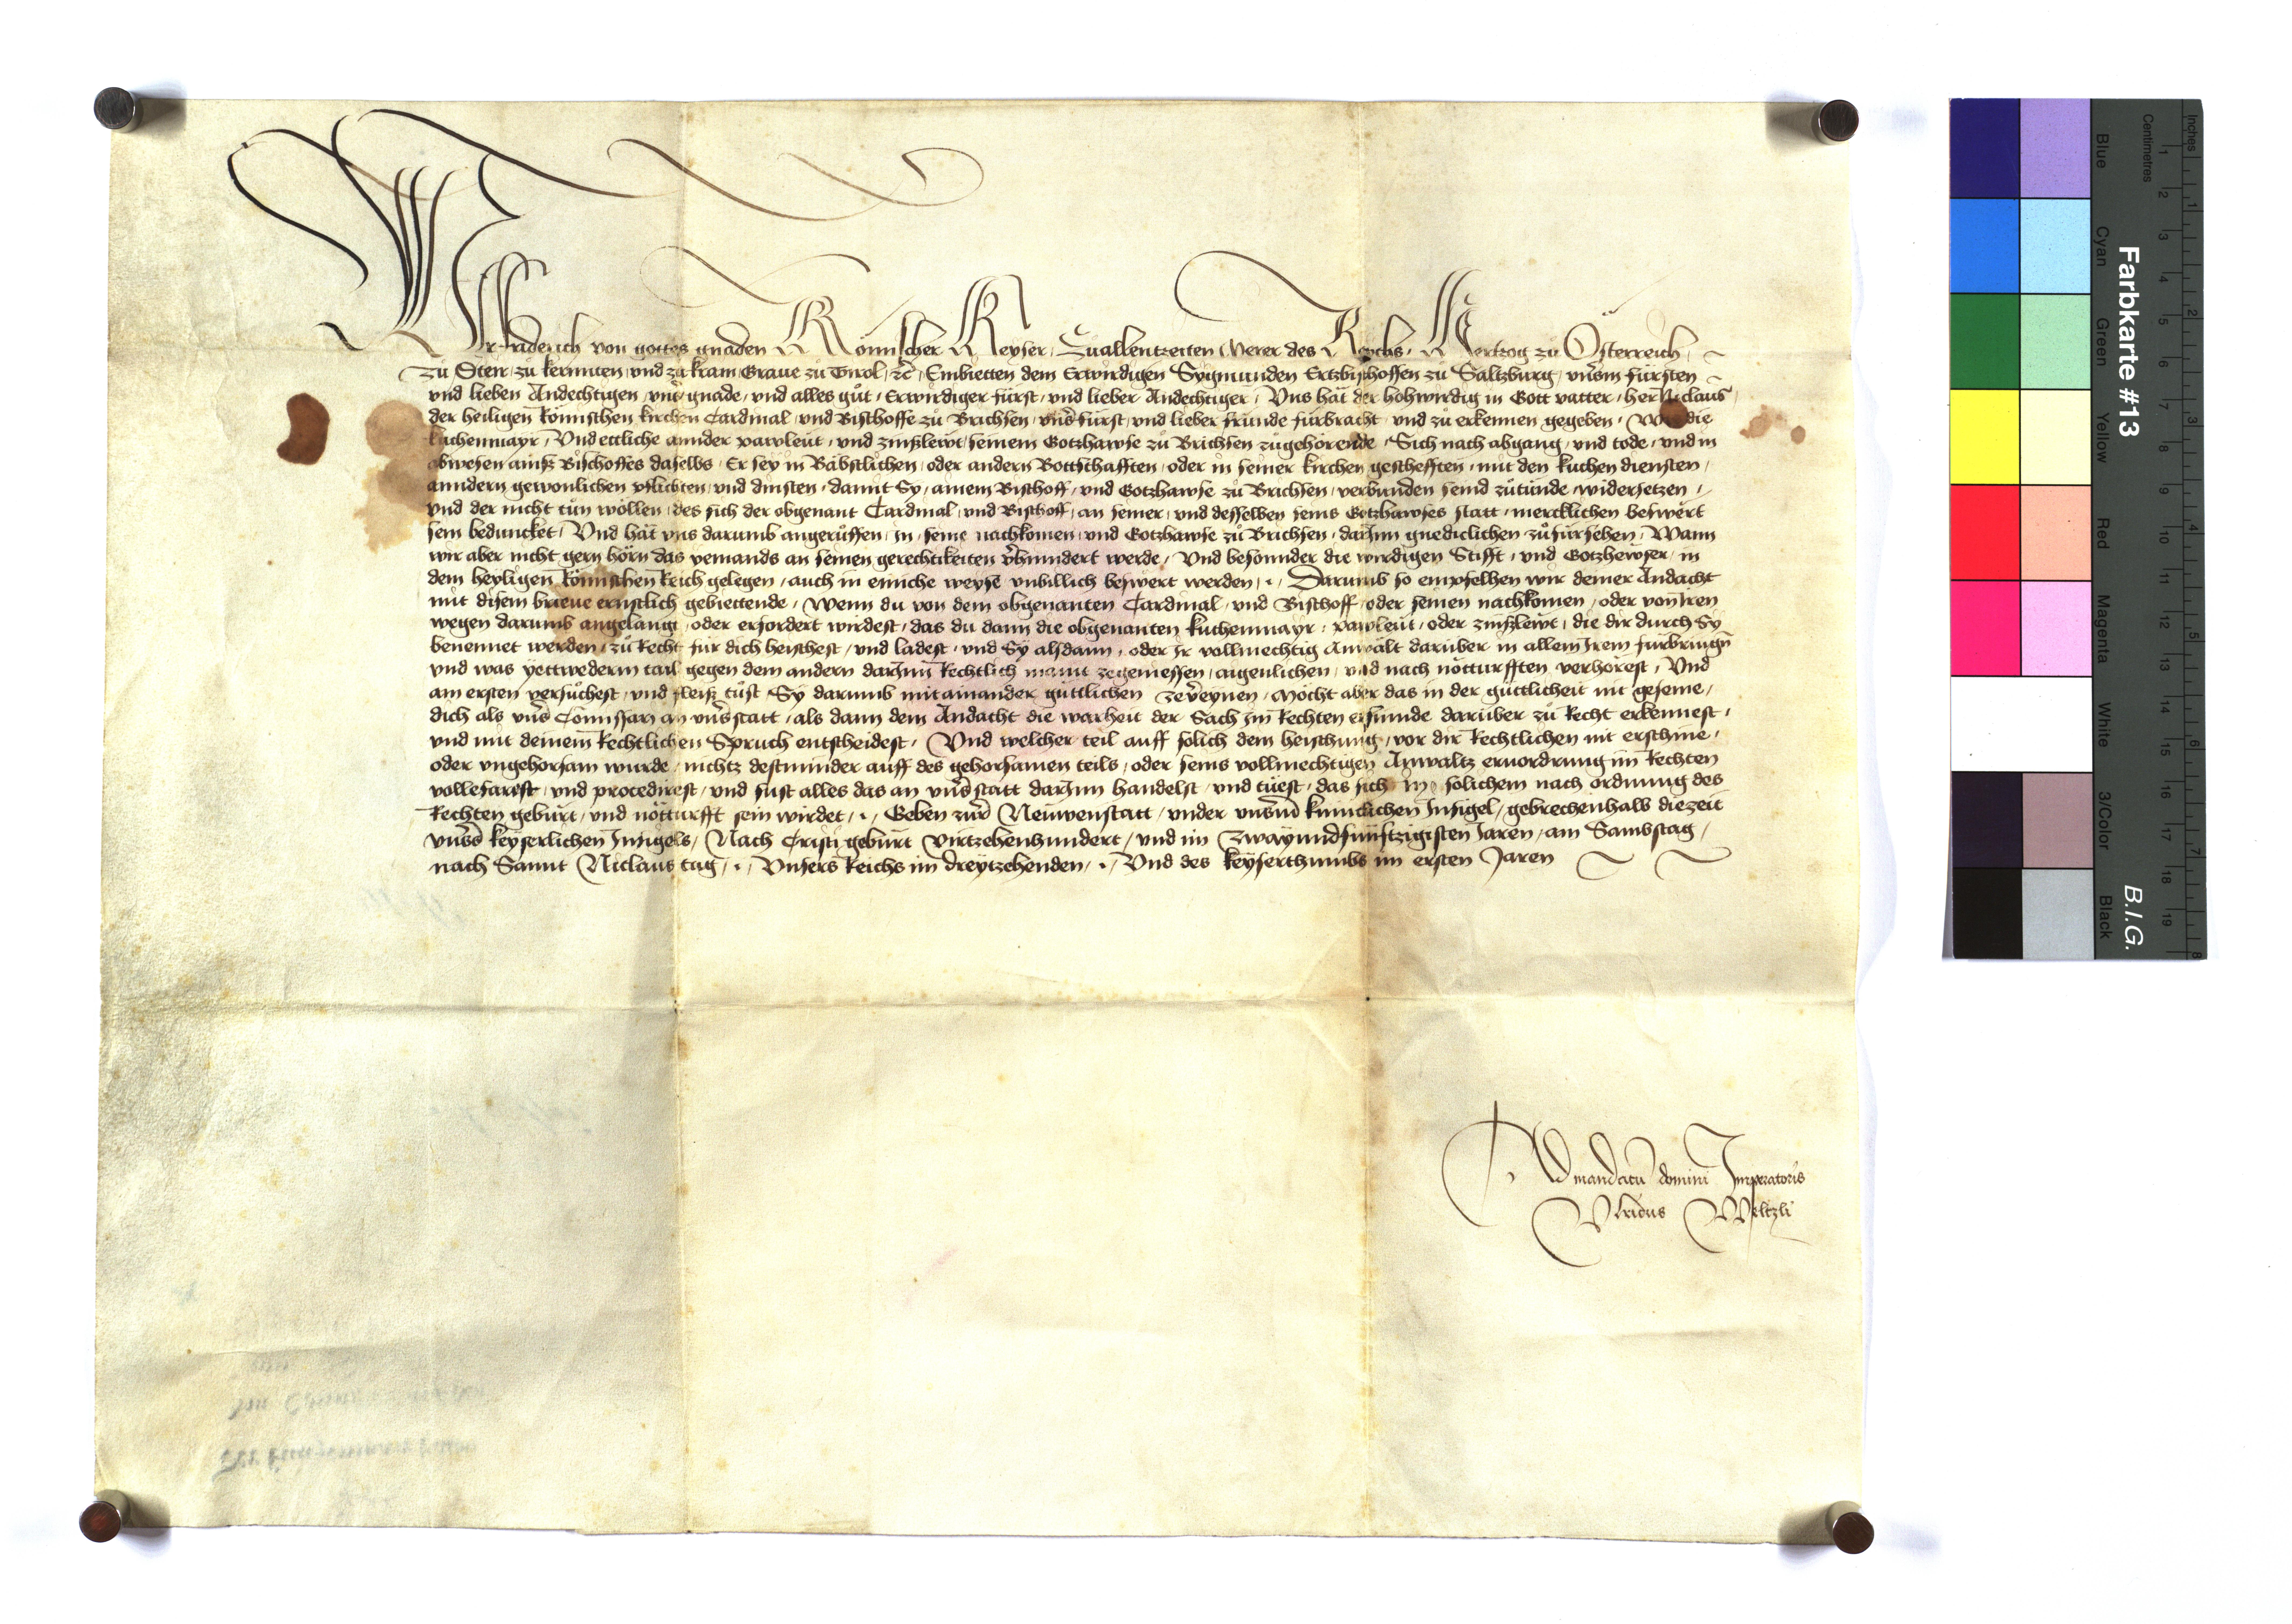 Wir Friderich von gottes gnaden Römischer Keyser, Zuallentzeiten Merer des Reychs, Hertzog zu Österreich,
zu Steir, zu kernnten, und zu krain, Graue zu Tirol, etc̃, Embietten dem Erwirdigen Sygmunden Ertzbischoffen zu Saltzburg, unserm fürsten
und lieben Andechtigen, unser gnade, und alles gůt, Erwirdiger fürst, und lieber Andechtiger, Uns hat der hohwirdig in Gott vatter, her Niclaus
der heiligen Römischen kirchen Cardinal, und Bischoffe zů Brichsen, unser fürst, und lieber fründe fürbracht, und zů erkennen gegeben, Wie die
kuchenmayr, Und ettliche annder pawleut, und zinszlewt, seinem Gotzhawse zů Brichsen zůgehörende, Sich nach abgang, und tode, und in
abwesen ainsz Bischoffes daselbs, Er sey in Bäbstlichen, oder andern Bottschafften, oder in seiner kirchen geschefften, mit den kuchen diensten,
anndern gewonlichen pflichten, und dinsten, damit Sy, ainem Bischoff, und Gotzhawse zů Brichsen, verbunden seind zůtünde, widersetzen,
und der nicht tůn wöllen, des sich der obgenant Cardinal, und Bischoff, an seiner, und desselben seins Gotzhawses statt, mercklichen beswert
sein beduncket, Und hat uns darumb angerůffen, in, seine nachkomen, und Gotzhawse zů Brichsen, darinn gnediclichen zůfürsehen, Wann
wir aber nicht gern hörn das yemands an seinen gerechtikeiten verhinndert werde, Und besonnder die wirdigen Stifft, und Gotzhewser, in
dem heyligen Römischen Reich gelegen, auch in einiche weyse unbillich beswert werden, Darumb so empfelhen wir deiner Andacht
mit disem brieue ernstlich gebiettende, Wenn du von dem obgenanten Cardinal, und Bischoff, oder seinen nachkomen, oder von Iren
wegen darumb angelangt, oder erfordert wirdest, das du dann die obgenanten kuchenmayr, pawleut, oder zinszlewt, die dir durch Sy
benennet werden, zů Recht für dich heischest, und ladest, und Sy alsdann, oder Ir vollmechtig Anwält darüber in allem Irem fürbringen
und was yettwederm tail gegen dem andern darinn Rechtlich zegeniessen, aigenlichen, und nach notturfften verhörest, Und
am ersten versůchest, und fleisz tůst Sy darumb mitainander güttlichen zevereynen, Möcht aber das in der güttlicheit nit gesein,
dich als unser Comissari an unser statt, als dann dein Andacht die warheit der Sach im Rechten erfunde darüber zů Recht erkennest,
und mit deinem Rechtlichen Spruch entscheidest, Und welcher teil auff solich dein heischung, vor dir Rechtlichen nit erschine,
oder ungehorsam wurde, nichtz destminder auff des gehorsamen teils, oder seins vollmechtigen Anwaltz ervordrung im Rechten
vollefarest, und procedirest, und sust alles das an unser statt darinn handelst, und tůest, das sich in solichem nach ordnung des
Rechten gebürt, und notturfft sein wirdet, Geben zur Neuwenstatt, under unserm kuniclichen Insigel, gebrechenhalb diezeit
unsers keyserlichen Insigels, Nach Cristi geburt Virtzehenhundert, und im Zwayundfünftzigisten Jaren, am Sambstag,
nach Sannt Niclaus tag, Unsers Reichs im dreytzehenden, Und des keyserthumbs im ersten Jaren
Ad mandatu domini Imperatoris
Ulricus Weltzli
Farbkarte #13
B.I.G.
Centimetres
Inches
Blue
Cyan
Green
Yellow
Red
Magenta
White
3/Color
Black
1 2 3 4 5 6 7 8 9 10 11 12 13 14 15 16 17 18 19
1 2 3 4 5 6 7 8